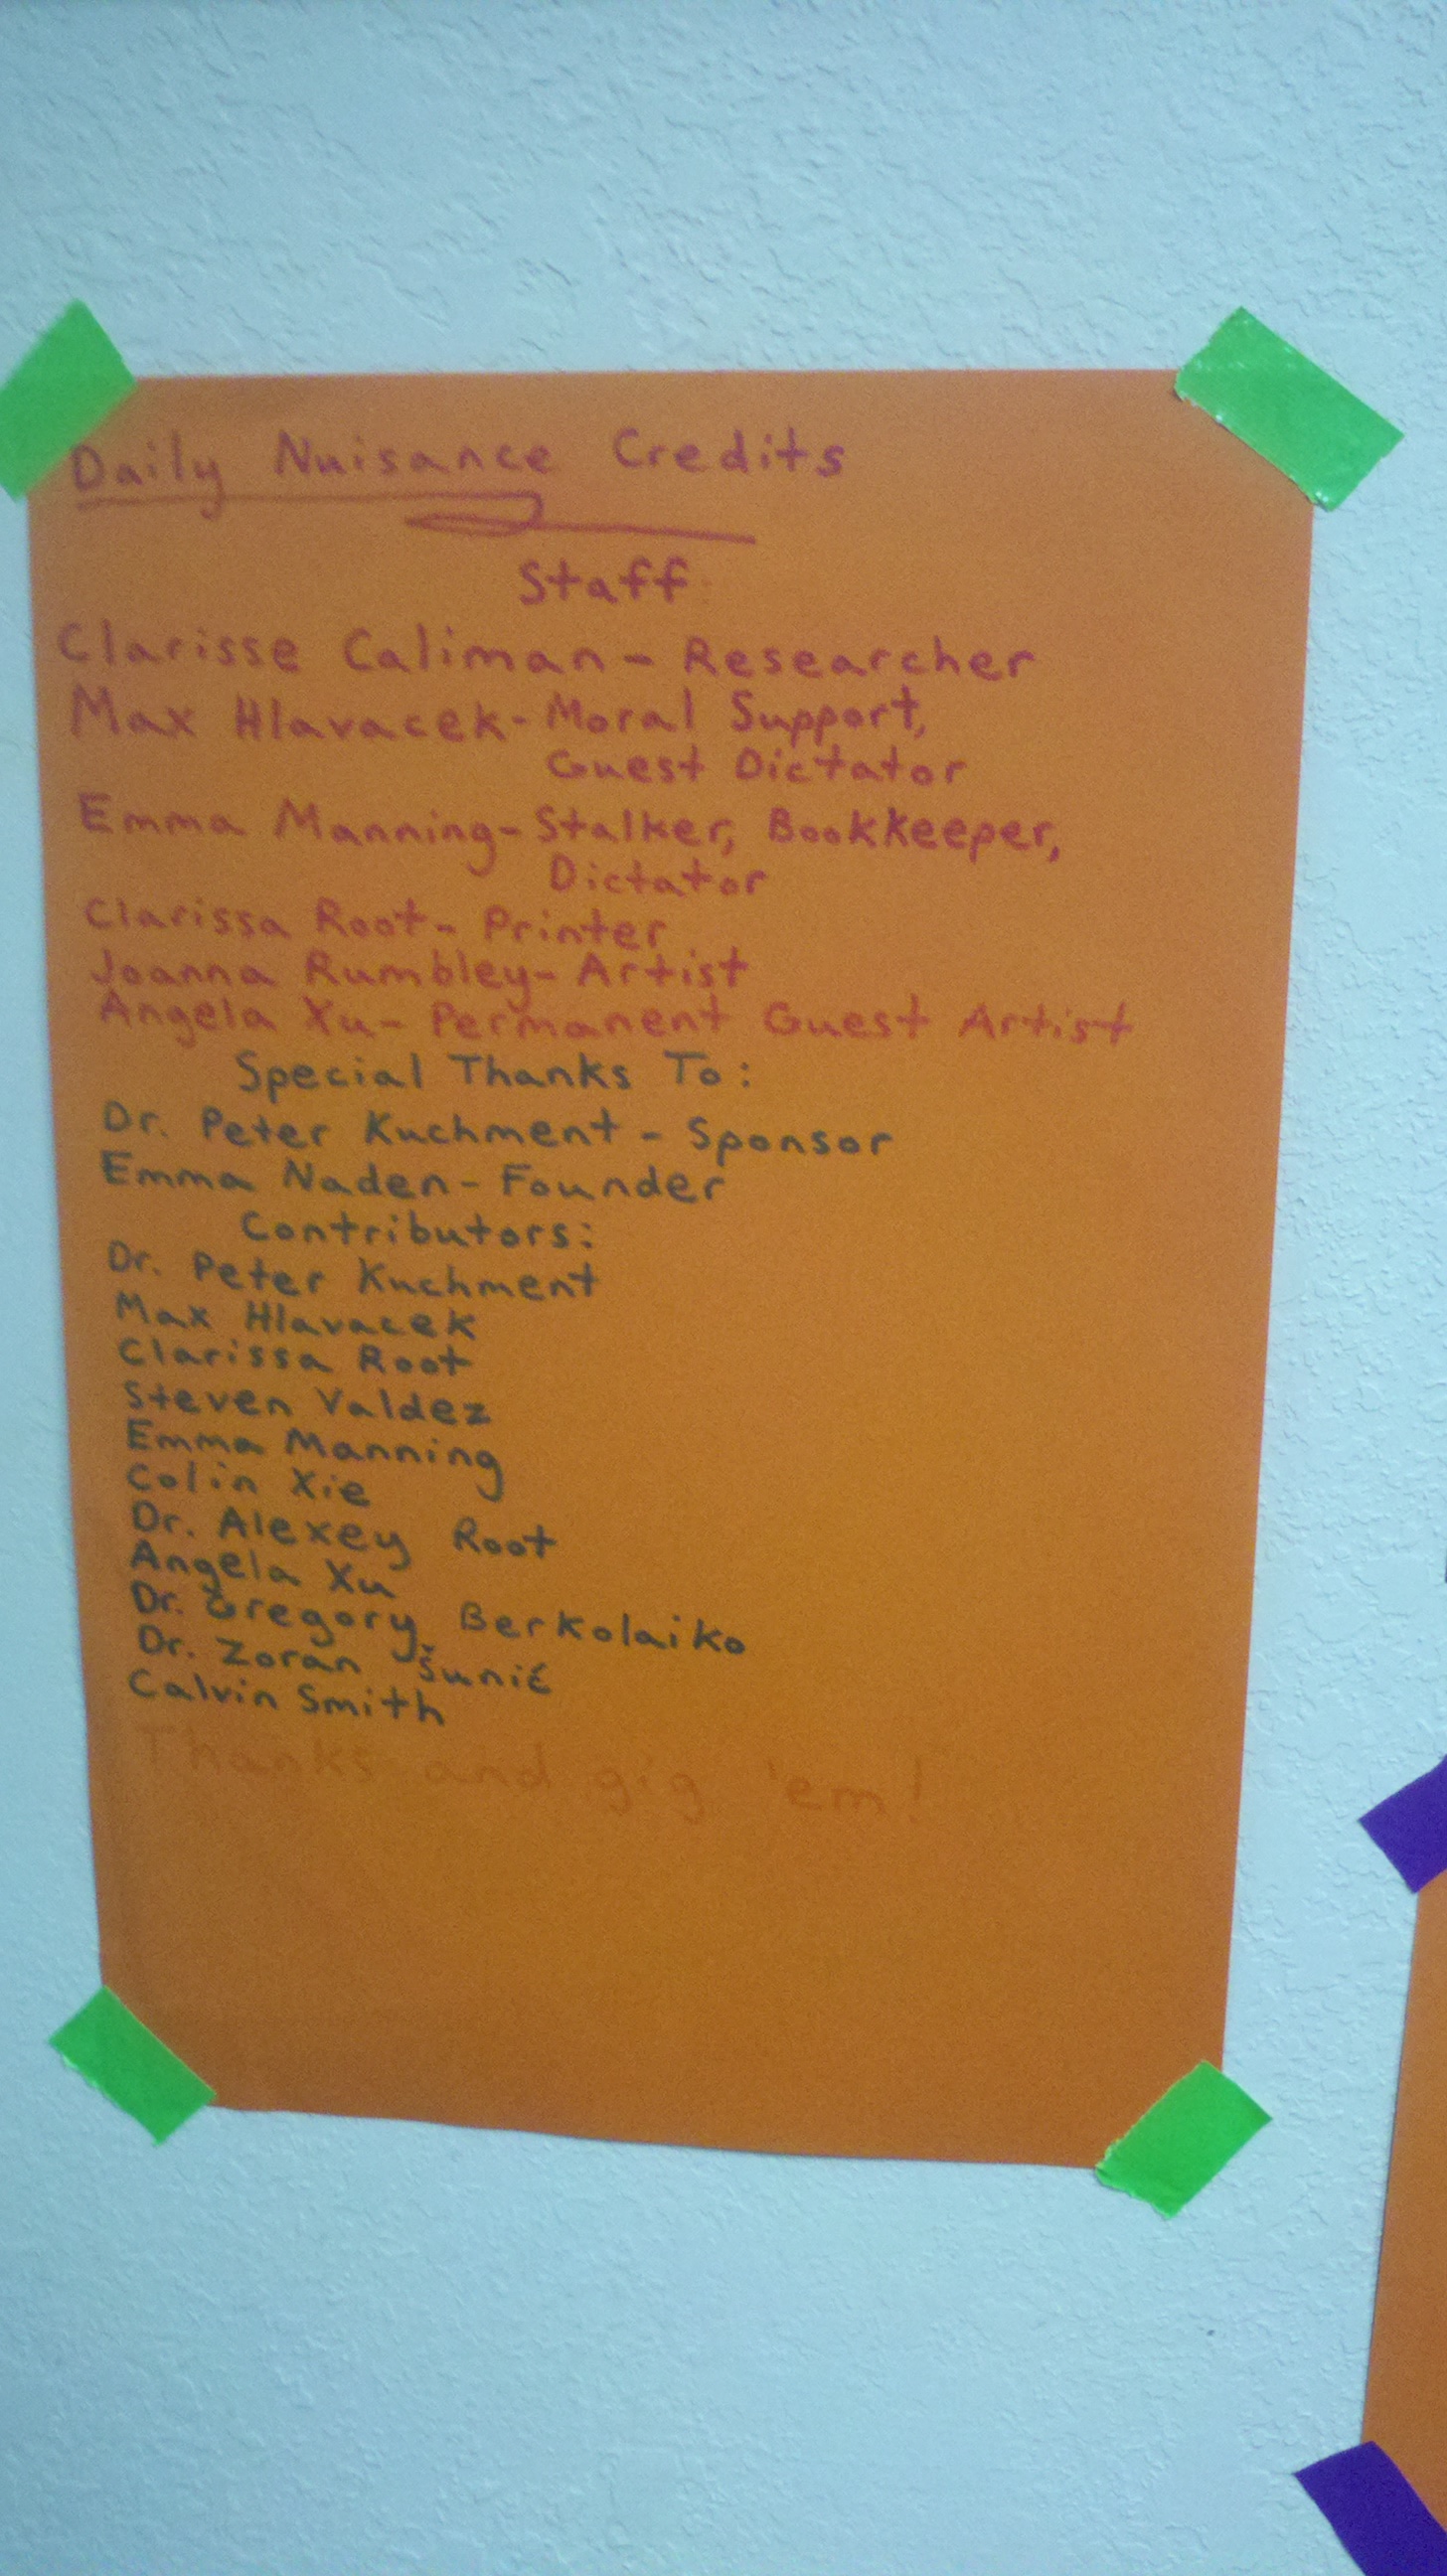 Daily Nuisance Credits
Staff:
Clarisse Caliman - Researcher
Max Hlavacek - Moral Support,
Guest Dictator
Emma Manning - Stalker, Bookkeeper,
Dictator
Clarissa Root - Printer
Joanna Rumbley - Artist
Angela Xu - Permanent Guest Artist
Special Thanks To:
Dr. Peter Kuchment - Sponsor
Emma Naden - Founder
Contributors:
Dr. Peter Kuchment
Max Hlavacek
Clarissa Root
Steven Valdez
Emma Manning
Colin Xie
Dr. Alexey Root
Angela Xu
Dr. Gregory Berkolaiko
Dr. Zoran Šunić
Calvin Smith
Thanks and gig 'em!